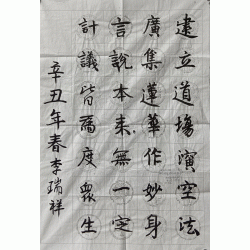 建立道場演空法
廣集蓮華作妙身
言說本来無一定
計議皆為度眾生
辛丑年春李瑞祥